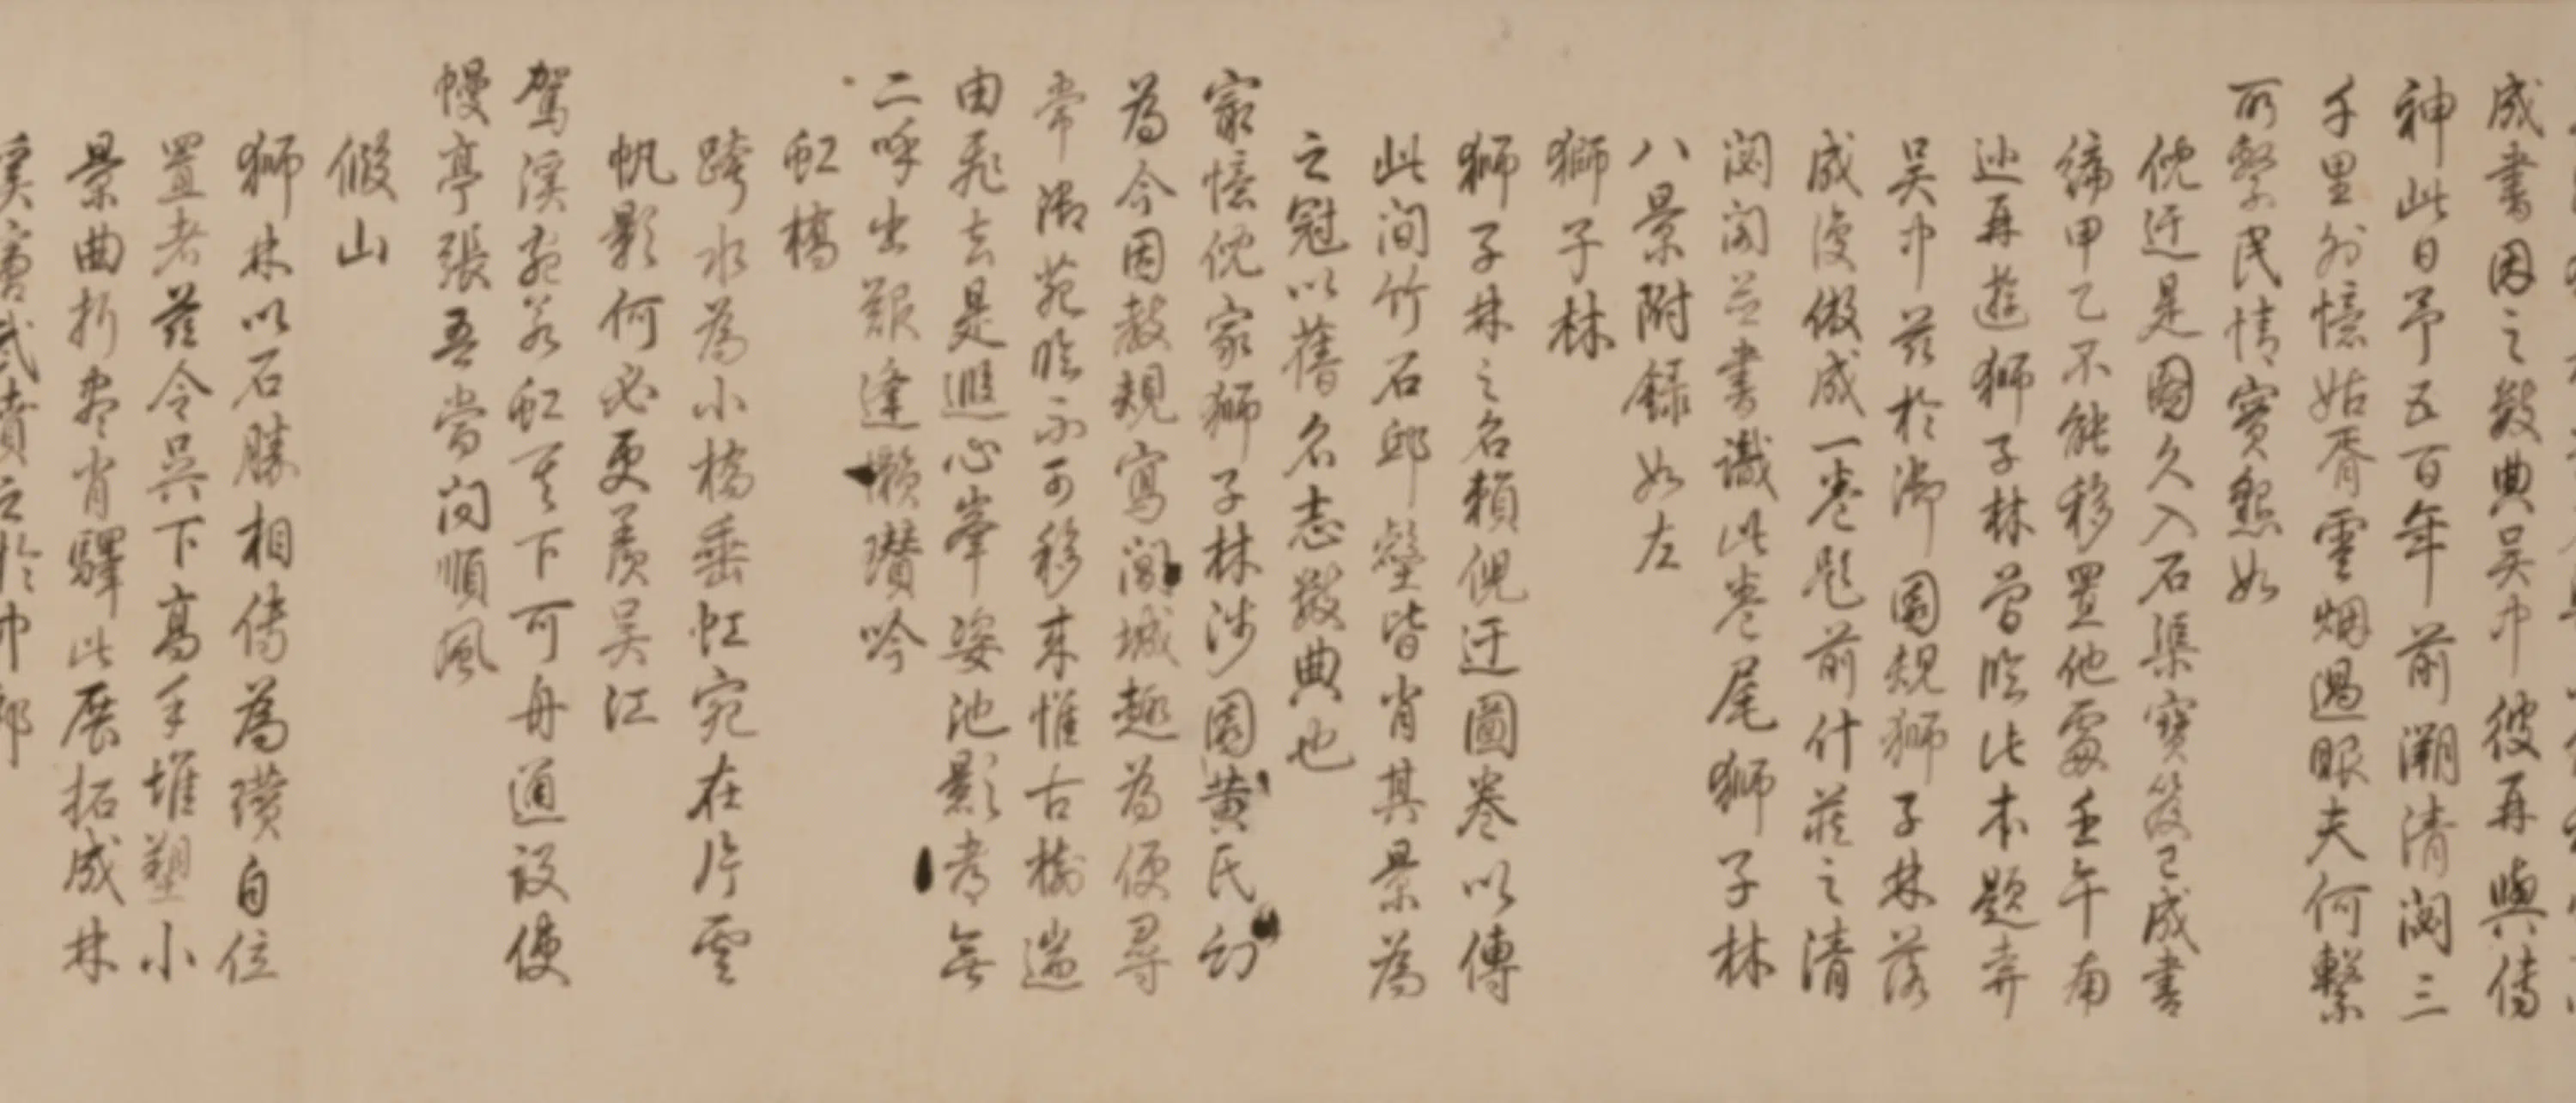 成書因之數典吳中彼再與傳
神此日予五百年前溯清閟三
千里外憶姑胥雲烟過眼夫何繫
所繫民情實懇如
倪迂是圖久入石渠寶笈已成書
締甲乙不能移置他處壬午南
巡再遊獅子林曾臨此本題弆
吳中茲於御園規獅子林落
成復倣成一卷題前什藏之清
閟閣並書識此卷尾獅子林
八景附錄如左
獅子林
獅子林之名賴倪迂圖卷以傳
此間竹石邱壑皆肖其景為
之冠以舊名志數典也
最憶倪家獅子林涉園黃氏幻
為今因教規寫閶城趣為便尋
常御苑臨不可移來惟古樹遄
由飛去是遐心峯姿池影都無
二呼出艱逢懶瓚吟
虹橋
跨水為小橋垂虹宛在片雲
帆影何必更羨吳江
駕溪宛若虹其下可舟通設使
幔亭張吾當問順風
假山
獅林以石勝相傳為瓚自位
置者茲令吳下高手堆塑小
景曲折盡肖驛此展拓成林
奚啻武賁之於中郎